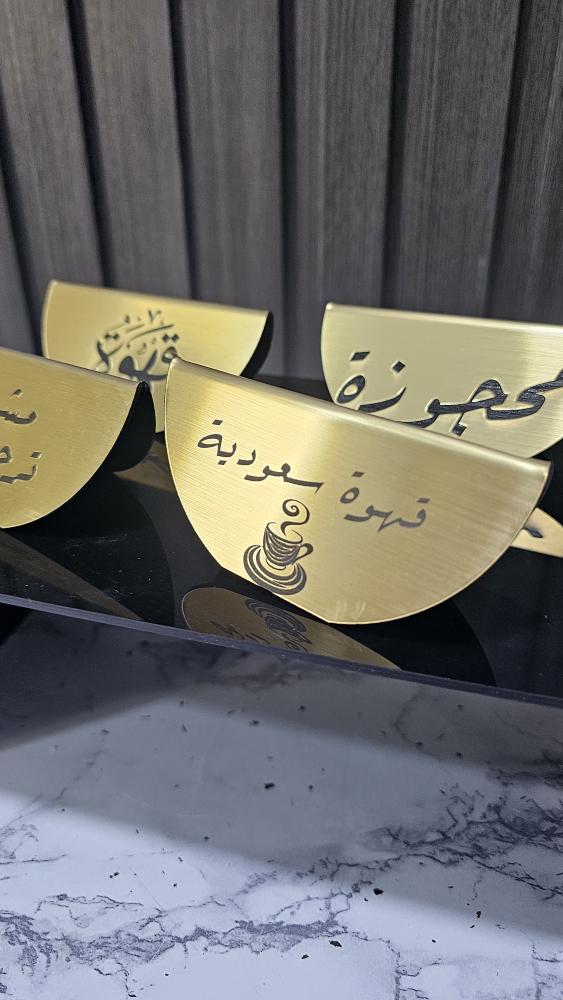 قهوة
محجوزة
قهوة سعودية